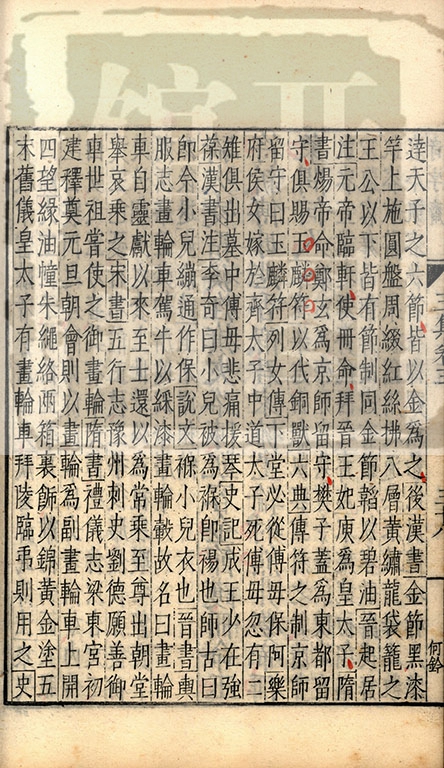 達天子之六節皆以金爲之後漢書金節黑漆
竿上施圓盤周綴紅絲拂八層黃繡龍袋籠之
王公以下皆有節制同金節韜以碧油晉起居
注元帝臨軒使冊命拜晉王妃庾爲皇太子隋
書煬帝命鄭玄爲京師留守樊子蓋爲東都留
守俱賜玉麟符以代銅獸六典傳符之制京師
留守曰玉麟符列女傳下堂必從傅母保阿樂
府侯女嫁於齊太子中道太子死傅母忽有二
雉俱出墓中傅母悲痛援琴史記成王少在強
葆漢書注李奇曰小兒被爲褓卽褟也師古曰
卽今小兒繃通作保說文褓小兒衣也晉書輿
服志畫輪車駕牛以綵漆畫輪轂故名曰畫輪
車自靈獻以來至士還以爲常乘至尊出朝堂
舉哀乘之宋書五行志豫州刺史劉德願善御
車世祖嘗使之御畫輪隋書禮儀志梁東宮初
建釋奠元旦朝會則以畫輪爲副畫輪車上開
四望綠油幢朱繩絡兩箱裏飾以錦黃金塗五
末舊儀皇太子有畫輪車拜陵臨弔則用之史
何鈴